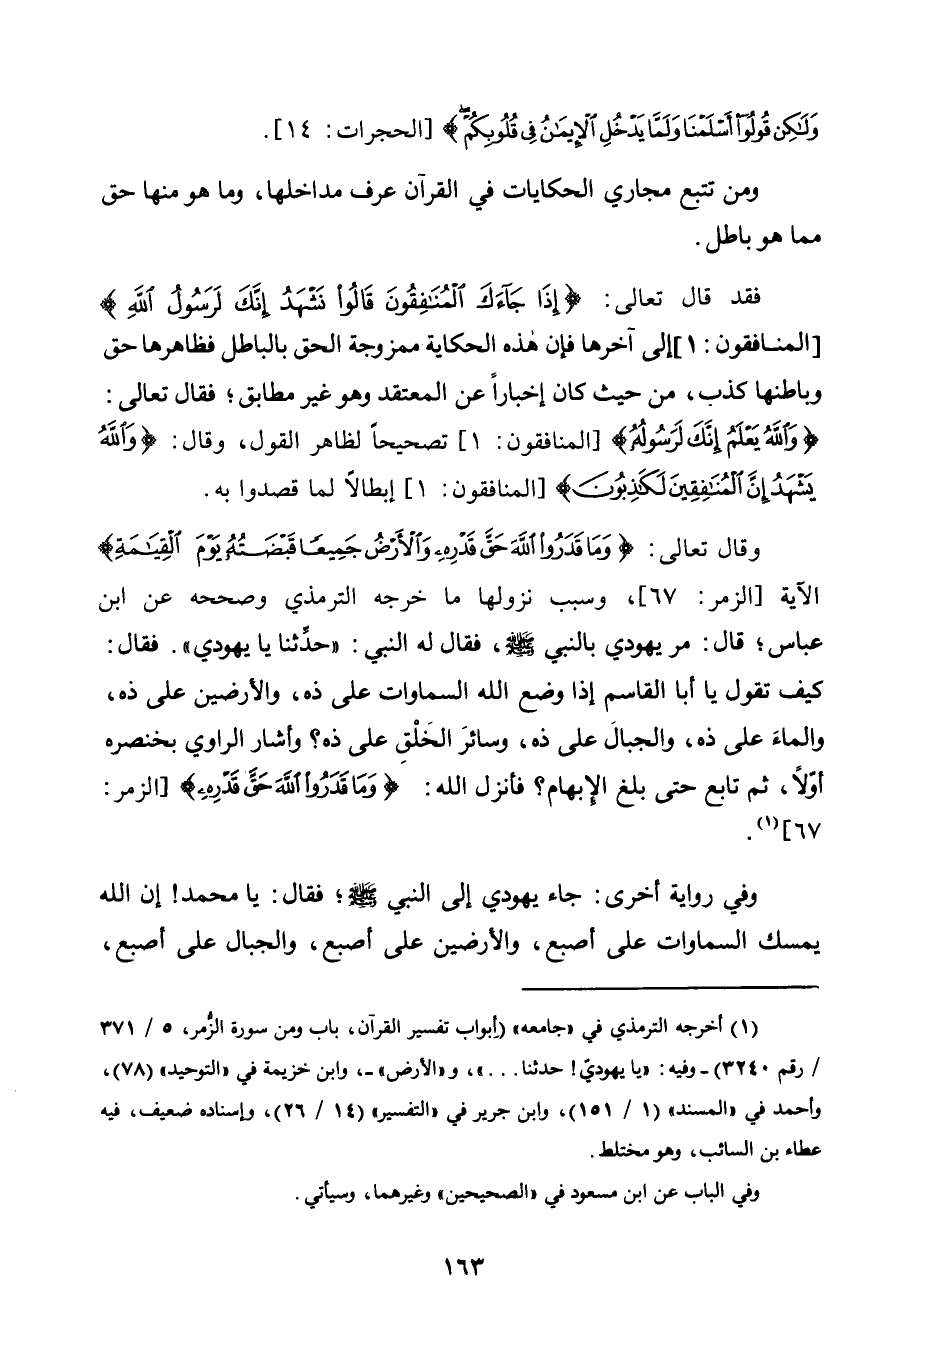 وَلَٰكِن قُولُوٓا۟ أَسْلَمْنَا وَلَمَّا يَدْخُلِ ٱلْإِيمَٰنُ فِى قُلُوبِكُمْ ۖ ﴾ [الحجرات: ١٤].
ومن تتبع مجاري الحكايات في القرآن عرف مداخلها، وما هو منها حق
مما هو باطل.
فقد قال تعالى: ﴿ إِذَا جَآءَكَ ٱلْمُنَٰفِقُونَ قَالُوا۟ نَشْهَدُ إِنَّكَ لَرَسُولُ ٱللَّهِ ﴾
[المنافقون: ١] إلى آخرها فإن هٰذه الحكاية ممزوجة الحق بالباطل فظاهرها حق
وباطنها كذب، من حيث كان إخباراً عن المعتقد وهو غير مطابق؛ فقال تعالى:
﴿ وَٱللَّهُ يَعْلَمُ إِنَّكَ لَرَسُولُهُۥ ﴾ [المنافقون: ١] تصحيحاً لظاهر القول، وقال: ﴿ وَٱللَّهُ
يَشْهَدُ إِنَّ ٱلْمُنَٰفِقِينَ لَكَٰذِبُونَ ﴾ [المنافقون: ١] إبطالاً لما قصدوا به.
وقال تعالى: ﴿ وَمَا قَدَرُوا۟ ٱللَّهَ حَقَّ قَدْرِهِۦ وَٱلْأَرْضُ جَمِيعًا قَبْضَتُهُۥ يَوْمَ ٱلْقِيَٰمَةِ ﴾
الآية [الزمر: ٦٧]، وسبب نزولها ما خرجه الترمذي وصححه عن ابن
عباس؛ قال: مر يهودي بالنبي ﷺ، فقال له النبي: «حدِّثنا يا يهودي». فقال:
كيف تقول يا أبا القاسم إذا وضع الله السماوات على ذه، والأرضين على ذه،
والماءَ على ذه، والجبالَ على ذه، وسائرَ الخَلْقِ على ذه؟ وأشار الراوي بخنصره
أوّلاً، ثم تابع حتى بلغ الإبهام؟ فأنزل الله: ﴿ وَمَا قَدَرُوا۟ ٱللَّهَ حَقَّ قَدْرِهِۦ ﴾ [الزمر:
٦٧](١).
وفي رواية أخرى: جاء يهودي إلى النبي ﷺ؛ فقال: يا محمد! إن الله
يمسك السماوات على أصبع، والأرضين على أصبع، والجبال على أصبع،
(١) أخرجه الترمذي في «جامعه» (أبواب تفسير القرآن، باب ومن سورة الزُّمر، ٥ / ٣٧١
/ رقم ٣٢٤٠) ـ وفيه: «يا يهوديّ! حدثنا...»، و«الأرض» ـ، وابن خزيمة في «التوحيد» (٧٨)،
وأحمد في «المسند» (١ / ١٥١)، وابن جرير في «التفسير» (١٤ / ٢٦)، وإسناده ضعيف، فيه
عطاء بن السائب، وهو مختلط.
وفي الباب عن ابن مسعود في «الصحيحين» وغيرهما، وسيأتي.
١٦٣